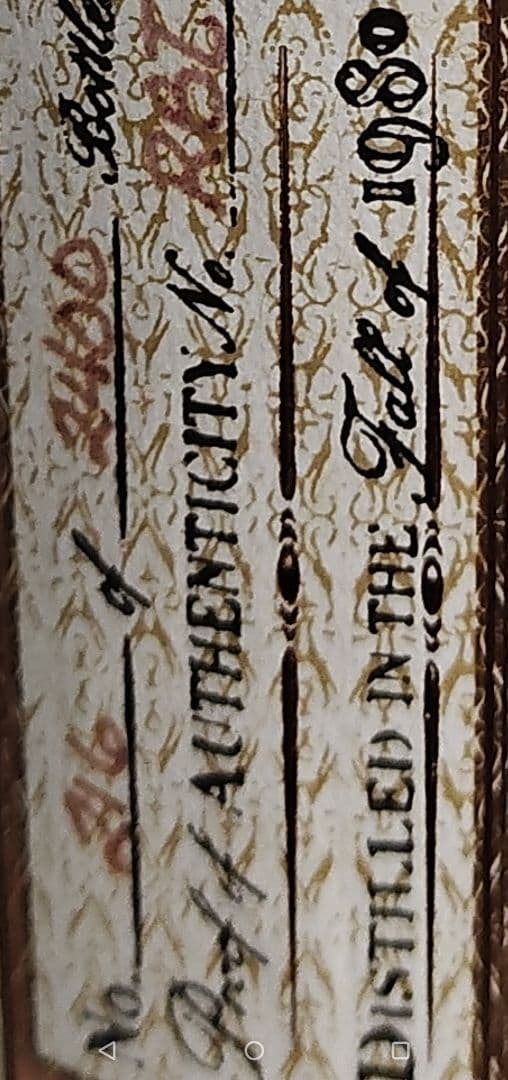 No. 246 of 2400 Bottle
Proof of AUTHENTICITY No.
DISTILLED IN THE Fall of 1980